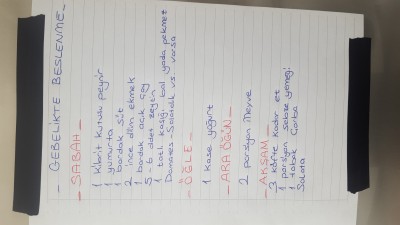 - GEBELİKTE BESLENME -
- SABAH -
1 Kibrit Kutusu peynir
1 yumurta
1 bardak süt
2 ince dilim ekmek
1 bardak açık çay
5-6 adet zeytin
1 tatlı kaşığı bal yada pekmez
Domates - Salatalık vs. varsa
- ÖĞLE -
1 Kase yoğurt
- ARA ÖĞÜN -
2 porsiyon Meyve
- AKŞAM -
3 Köfte Kadar et
1 porsiyon sebze yemeği
1 tabak Çorba
Salata